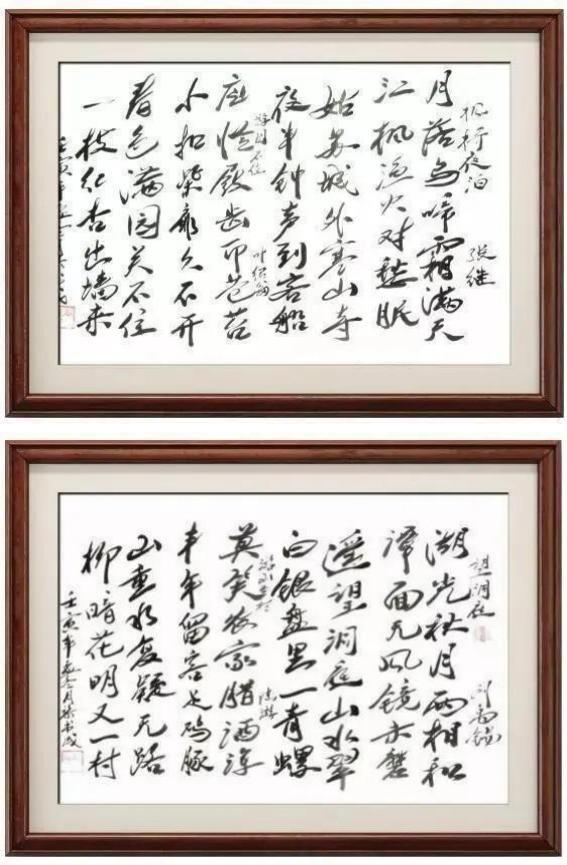 枫桥夜泊 张继
月落乌啼霜满天
江枫渔火对愁眠
姑苏城外寒山寺
夜半钟声到客船
游园不值 叶绍翁
应怜屐齿印苍苔
小扣柴扉久不开
春色满园关不住
一枝红杏出墙来
壬寅年
望洞庭 刘禹锡
湖光秋月两相和
潭面无风镜未磨
遥望洞庭山水翠
白银盘里一青螺
游山西村 陆游
莫笑农家腊酒浑
丰年留客足鸡豚
山重水复疑无路
柳暗花明又一村
壬寅年